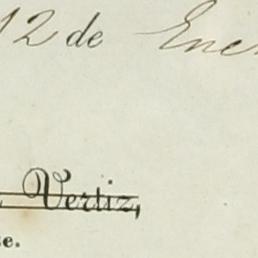 12 de Ene
Vertiz,
e.